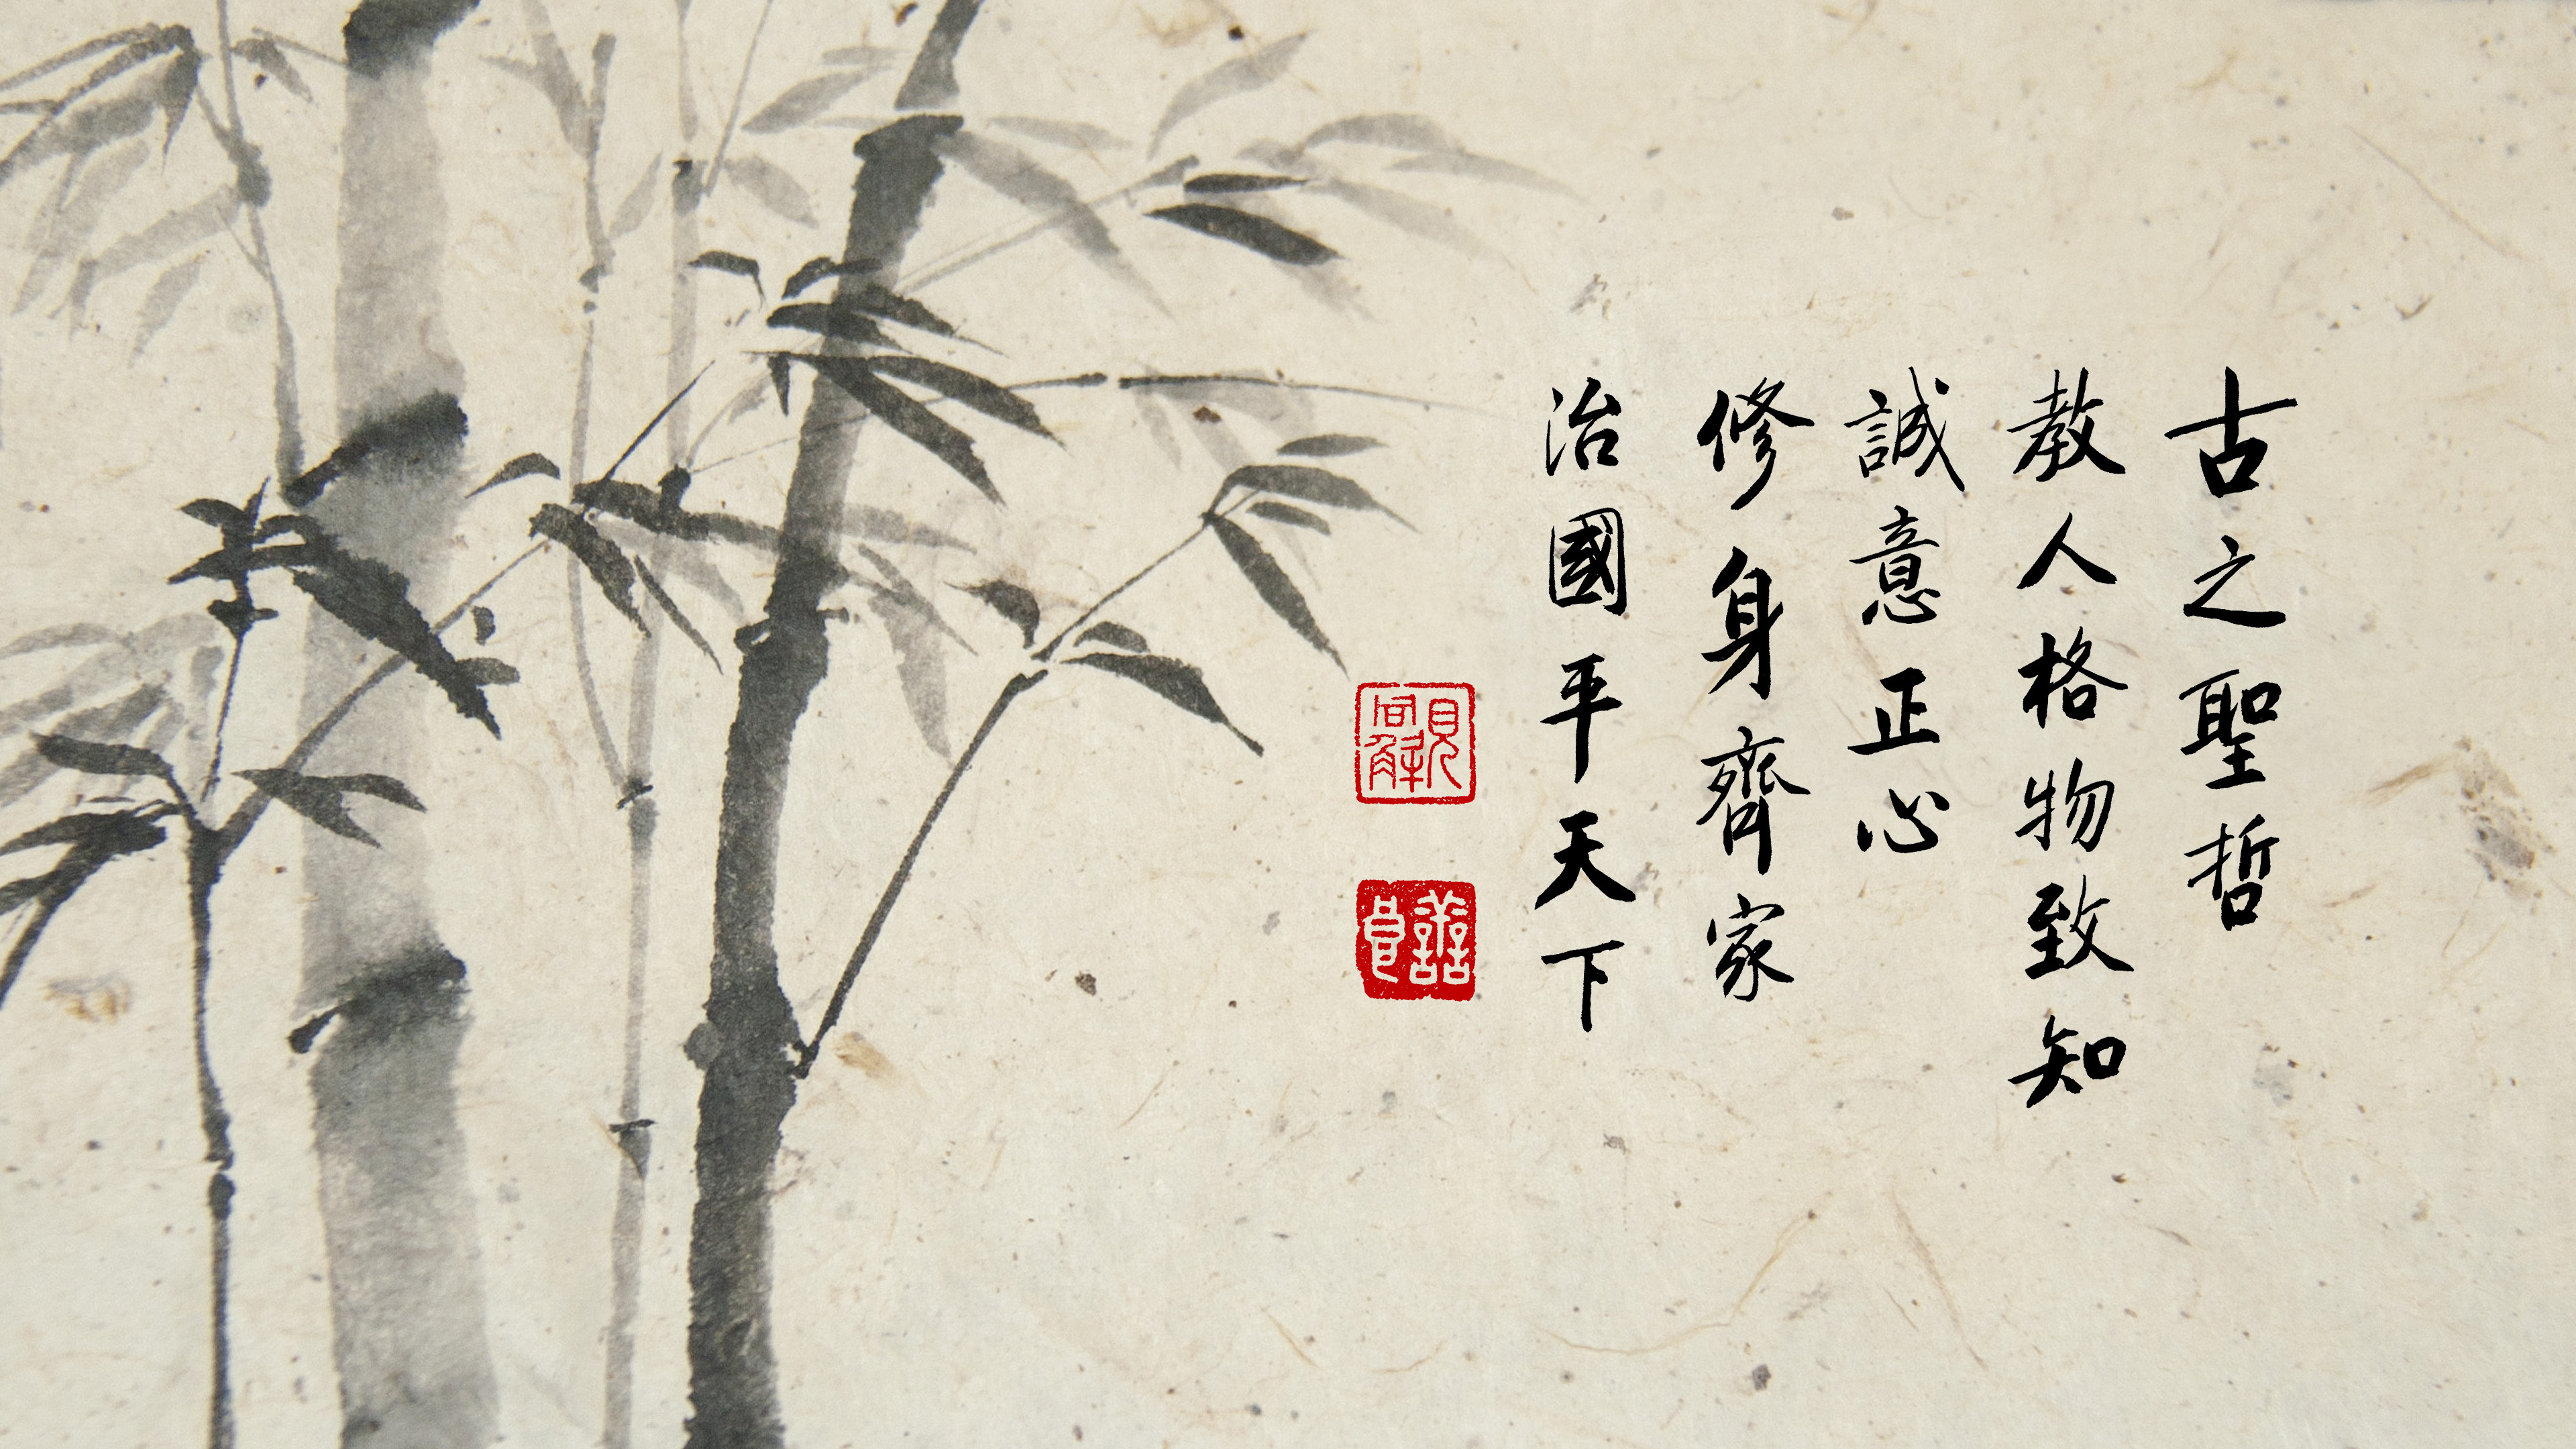 古之聖哲
教人格物致知
誠意正心
修身齊家
治國平天下